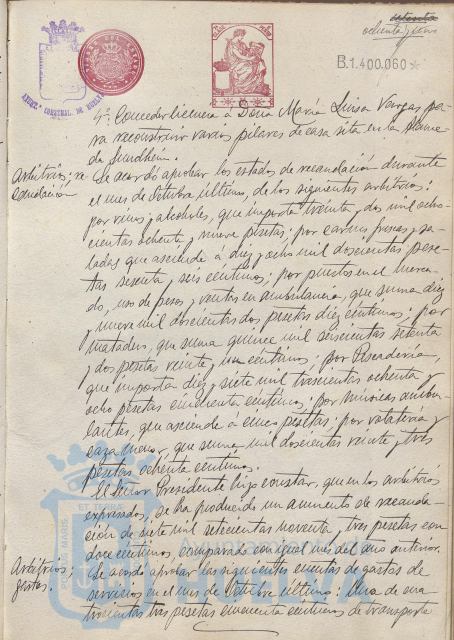 setenta
ochenta y uno
B.1.400.060
4º Conceder licencia á Doña María Luisa Vargas pa-
ra reconstruir varios pilares de casa sita en la Alame-
da Sundheim.
Arbitrios; re-
caudación
Se acordó aprobar los estados de recaudación durante
el mes de Octubre último, de los siguientes arbitrios:
por vinos y alcoholes, que importa treinta y dos mil ocho-
cientas ochenta y nueve pesetas; por carnes frescas y sa-
ladas que asciende á diez y ocho mil doscientas pese-
tas sesenta y seis céntimos; por puestos en el merca-
do, uso de pesas y ventas en ambulancia, que suma diez
y nueve mil doscientas dos pesetas diez céntimos; por
matadero, que suma quince mil seiscientas setenta
y dos pesetas veinte y un céntimos; por Pescadería,
que importa diez y siete mil trescientas ochenta y
ocho pesetas cincuenta céntimos; por músicas ambu-
lantes, que asciende á cinco pesetas; por volatería y
caza menor, que suma mil doscientas veinte y tres
pesetas ochenta céntimos.
El Señor Presidente hizo constar, que en los arbitrios
expresados, se ha producido un aumento de recauda-
ción de siete mil setecientas noventa y tres pesetas con
doce céntimos comparada con igual mes del año anterior.
Arbitrios;
gastos.
Se acordó aprobar las siguientes cuentas de gastos de
servicios en el mes de Octubre último: Una de cua-
trocientas tres pesetas cincuenta céntimos de transporte